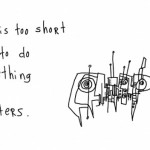 is too short
to do
thing
ters.